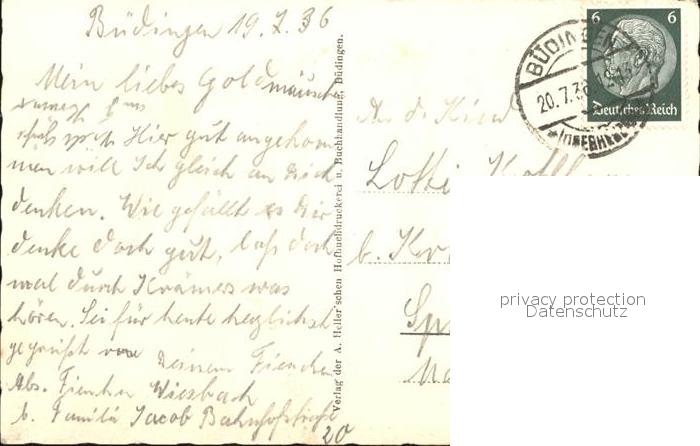 Büdingen 19.7.36
Mein liebes Goldmäusche
Hier gut angekom
men will Ich gleich an Dich
denken. Wie gefällt es Dir
denke doch gut, laß doch
mal durch Krämers was
hören. Sei für heute herzlichst
gegrüßt von Deinem Fienchen
Abs. Fienchen Wiesbach
b. Familie Jacob Bahnhofstraße
20
Verlag der A. Heller'schen Hofbuchdruckerei u. Buchhandlung, Büdingen.
6 6
Deutsches Reich
BÜDINGEN
20.7.36
OBERHESSEN
An d. Kind
Lotti
b. Kr
Sp
privacy protection
Datenschutz